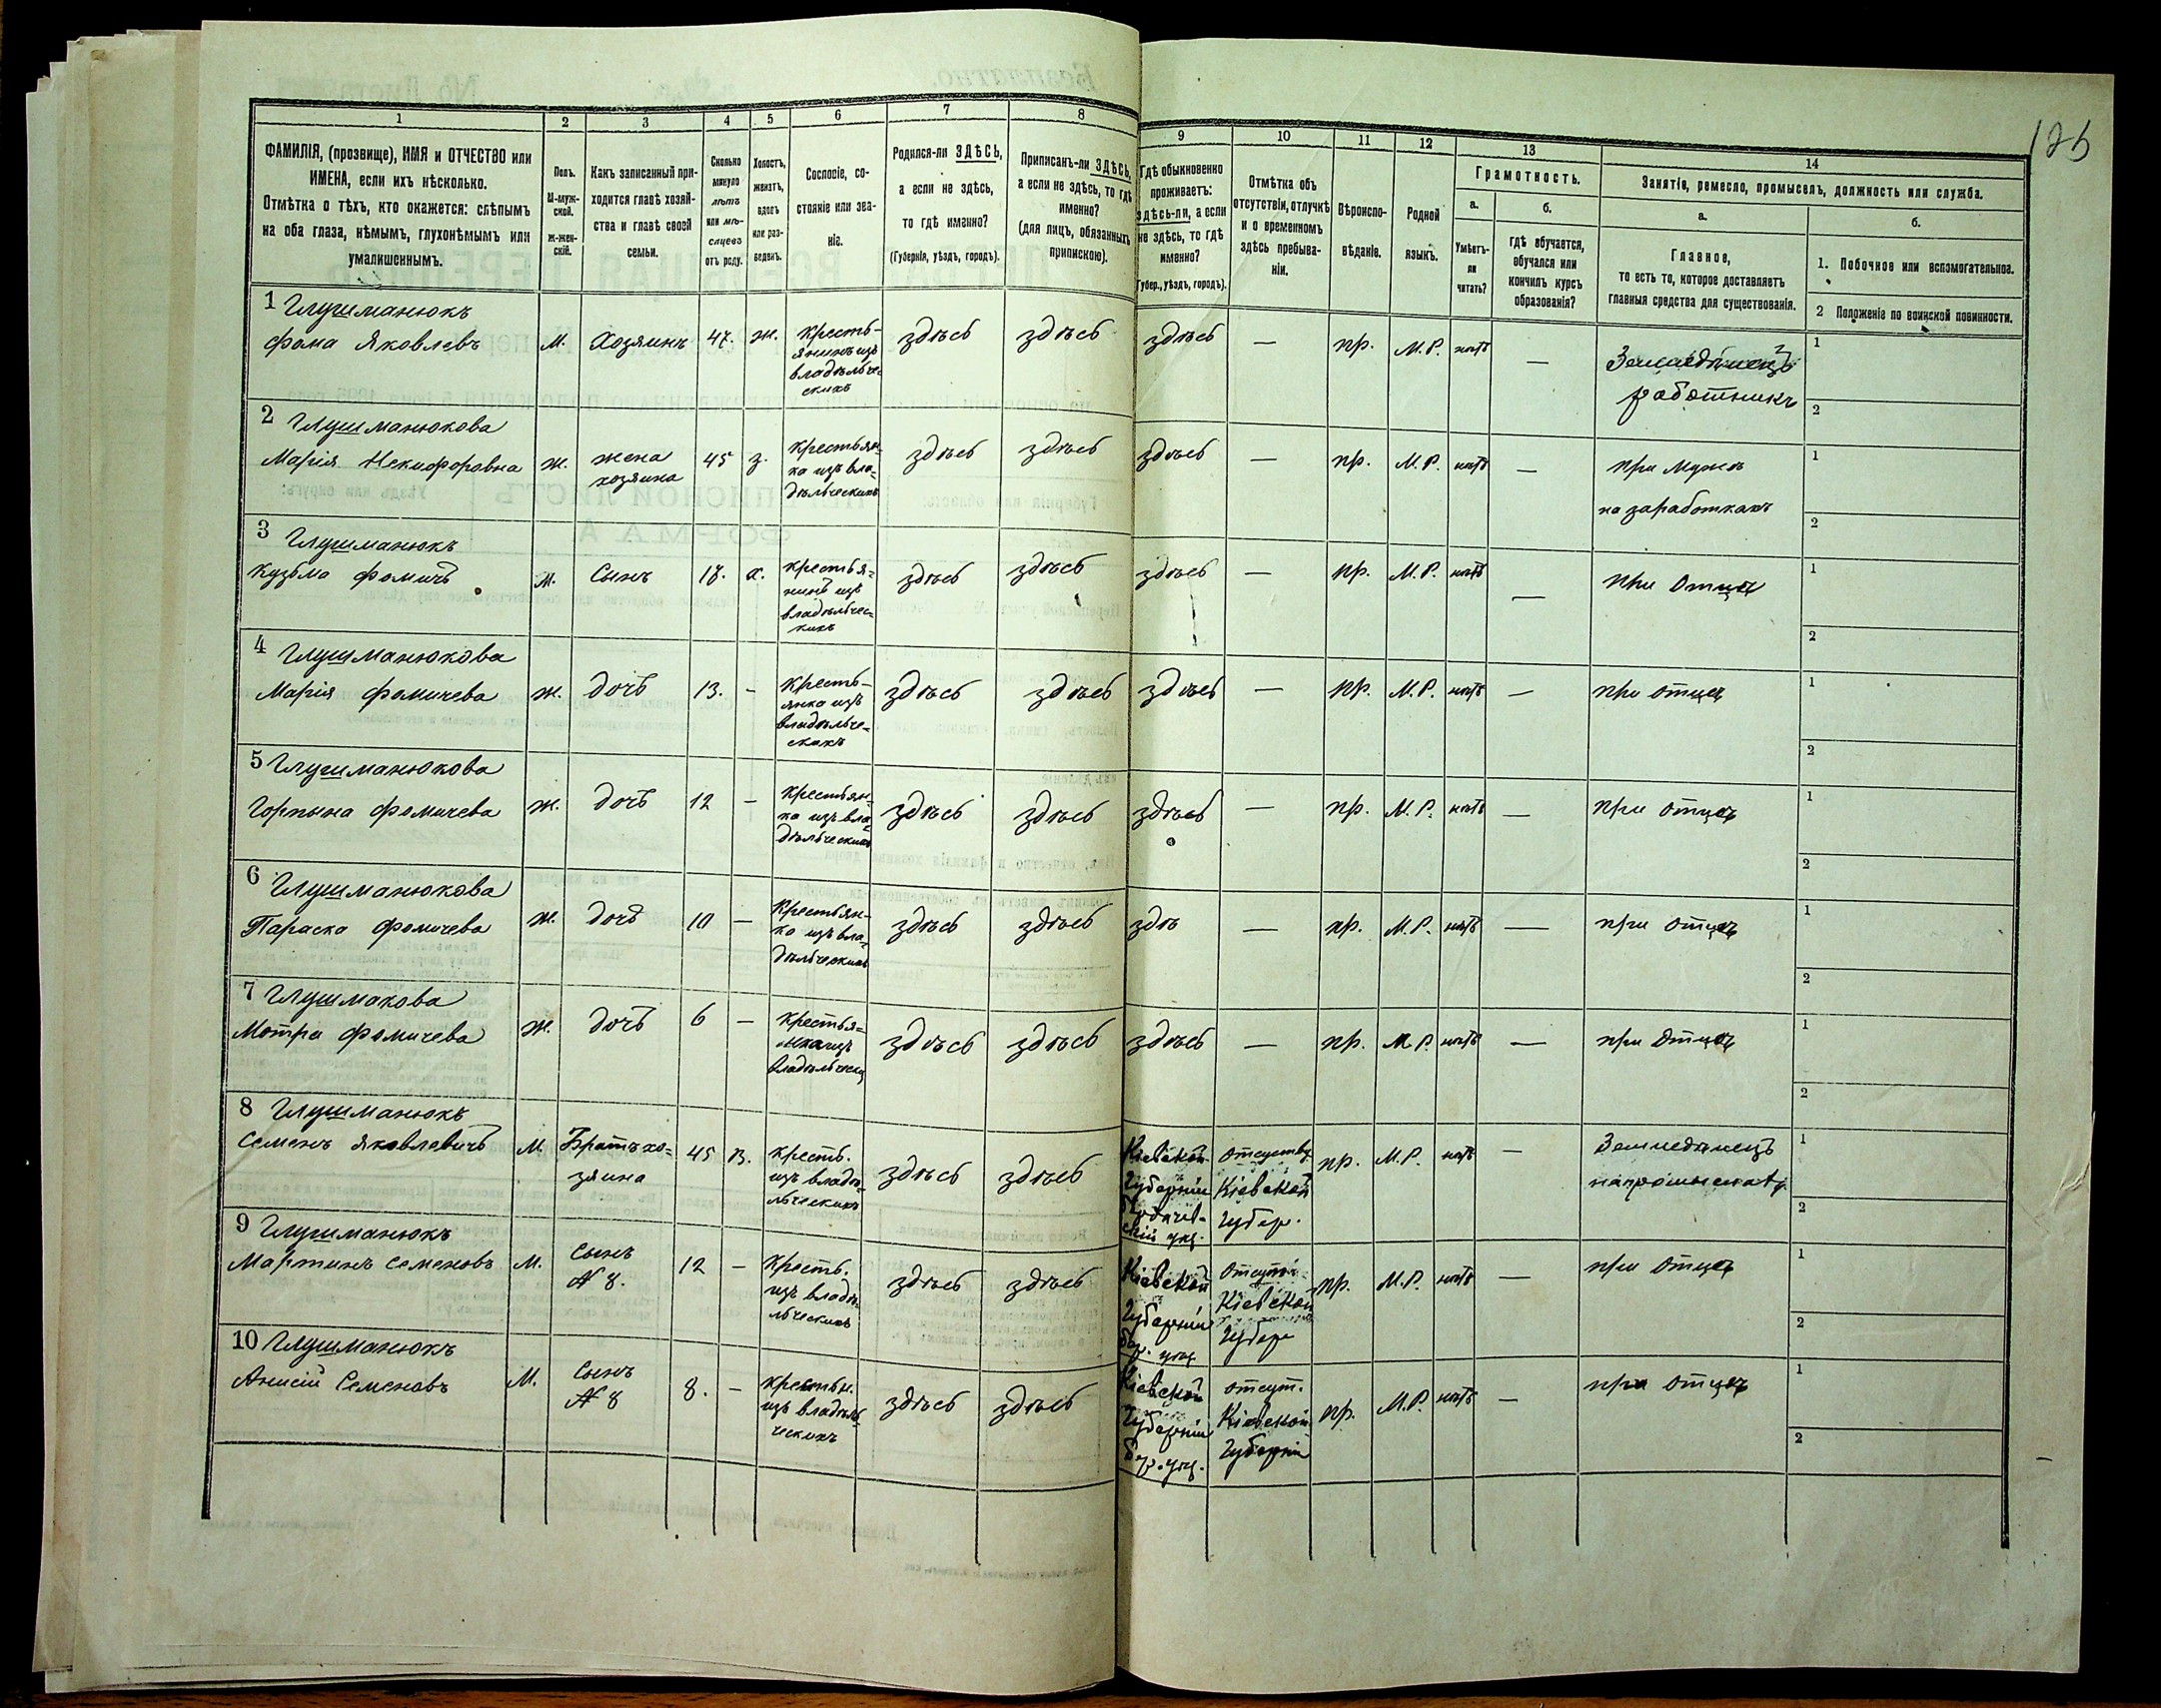 125
1 2 3 4 5 6 7 8 9 10 11 12 13 14
ФАМИЛІЯ, (прозвище), ИМЯ и ОТЧЕСТВО или
ИМЕНА, если ихъ нѣсколько.
Отмѣтка о тѣхъ, кто окажется: слѣпымъ
на оба глаза, нѣмымъ, глухонѣмымъ или
умалишеннымъ.
Полъ.
М-муж-
ской.
Ж-жен-
скій.
Какъ записанный при-
ходится главѣ хозяй-
ства и главѣ своей
семьи.
Сколько
минуло
лѣтъ
или мѣ-
сяцевъ
отъ роду.
Холостъ,
женатъ,
вдовъ
или раз-
веденъ.
Сословіе, со-
стояніе или зва-
ніе.
Родился-ли ЗДѢСЬ,
а если не здѣсь,
то гдѣ именно?
(Губернія, уѣздъ, городъ).
Приписанъ-ли ЗДѢСЬ,
а если не здѣсь, то гдѣ
именно?
(для лицъ, обязанныхъ
припискою).
Гдѣ обыкновенно
проживаетъ:
здѣсь-ли, а если
не здѣсь, то гдѣ
именно?
(Губер., уѣздъ, городъ).
Отмѣтка объ
отсутствіи, отлучкѣ
и о временномъ
здѣсь пребыва-
ніи.
Вѣроиспо-
вѣданіе.
Родной
языкъ.
Грамотность.
а.
Умѣетъ-
ли
читать?
б.
гдѣ обучается,
обучался или
кончилъ курсъ
образованія?
Занятіе, ремесло, промыселъ, должность или служба.
а.
Главное,
то есть то, которое доставляетъ
главныя средства для существованія.
б.
1. Побочное или вспомогательное.
2 Положеніе по воинской повинности.
1 Глушманюкъ
Фома Яковлевъ
м. Хозяинъ 47. ж.
Кресть-
янинъ изъ
владѣльче-
скихъ
здѣсь здѣсь здѣсь — пр. М.Р. нѣтъ —
Земледѣлецъ
работникъ
1
2
2 Глушманюкова
Марія Никифоровна
ж. жена
хозяина
45 з.
Крестьян-
ка изъ вла-
дѣльческихъ
здѣсь здѣсь здѣсь — пр. М.Р. нѣтъ —
при мужѣ
на заработкахъ
1
2
3 Глушманюкъ
Кузьма Фомичъ
м. Сынъ 18. х.
Крестья-
нинъ изъ
владѣльчес-
кихъ
здѣсь здѣсь здѣсь — пр. М.Р. нѣтъ — при Отцѣ
1
2
4 Глушманюкова
Марія Фомичева
ж. дочь 13. —
Кресть-
янка изъ
владѣльче-
скихъ
здѣсь здѣсь здѣсь — пр. М.Р. нѣтъ — при отцѣ
1
2
5 Глушманюкова
Горпына Фомичева
ж. дочь 12 —
Крестьян-
ка изъ вла-
дѣльческихъ
здѣсь здѣсь здѣсь — пр. М.Р. нѣтъ — при отцѣ
1
2
6 Глушманюкова
Параска Фомичева
ж. дочь 10 —
Крестьян-
ка изъ вла-
дѣльческихъ
здѣсь здѣсь здѣ — пр. М.Р. нѣтъ — при отцѣ
1
2
7 Глушмакова
Мотря Фомичева
ж. дочь 6 —
Крестья-
нка изъ
владѣльческ
здѣсь здѣсь здѣсь — пр. М.Р. нѣтъ — при Отцѣ
1
2
8 Глушманюкъ
Семенъ Яковлевичъ
М. Братъ хо-
зяина
45 в.
Кресть.
изъ владѣ-
льческихъ
здѣсь здѣсь
Кіевской
Губерніи
Отсутству
Кіевской
Губер.
пр. М.Р. нѣтъ —
Земледѣлецъ
1
2
9 Глушманюкъ
Мартинъ Семеновъ
М. Сынъ
№ 8.
12 —
Кресть.
изъ владѣ-
льческихъ
здѣсь здѣсь
Кіевской
Губерніи
Бер. уѣз
Отсут.
Кіевской
Губер
пр. М.Р. нѣтъ — при Отцѣ
1
2
10 Глушманюкъ
Анисій Семеновъ
М. Сынъ
№ 8
8. —
Крестьн.
изъ владѣль-
ческихъ
здѣсь здѣсь
Кіевской
Губерніи
Бер. уѣз.
отсут.
Кіевской
Губерніи
пр. М.Р. нѣтъ — при Отцѣ
1
2